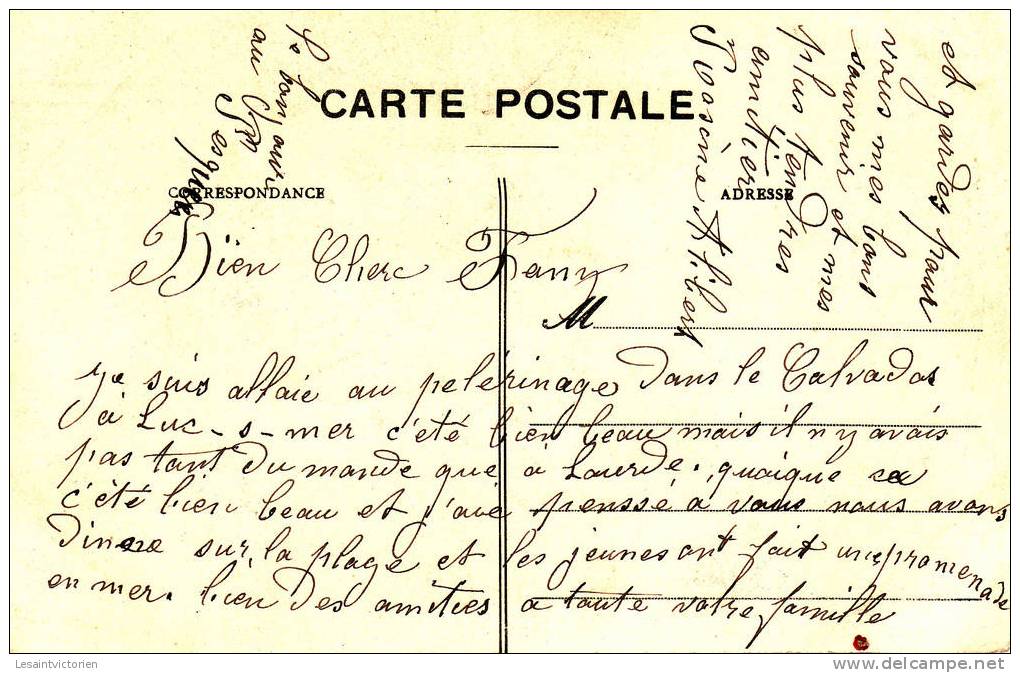 CARTE POSTALE
CORRESPONDANCE
ADRESSE
Bien Chere Fany
M
je suis allaie au pelérinage dans le Calvados
à Luc-s-mer c'été bien beau mais il n'y avais
pas tant du monde que à Lourde. quoique sa
c'été bien beau et j'avé penssé a vous nous avons
Dinee sur la plage et les jeunes ont fait une promenade
en mer. bien des amities a toute votre famille
et gardes pour
vous mes bons
souvenir et mes
plus tendres
amitier
Alibert
bonjour
au
Lesaintvictorien
delcampe.net